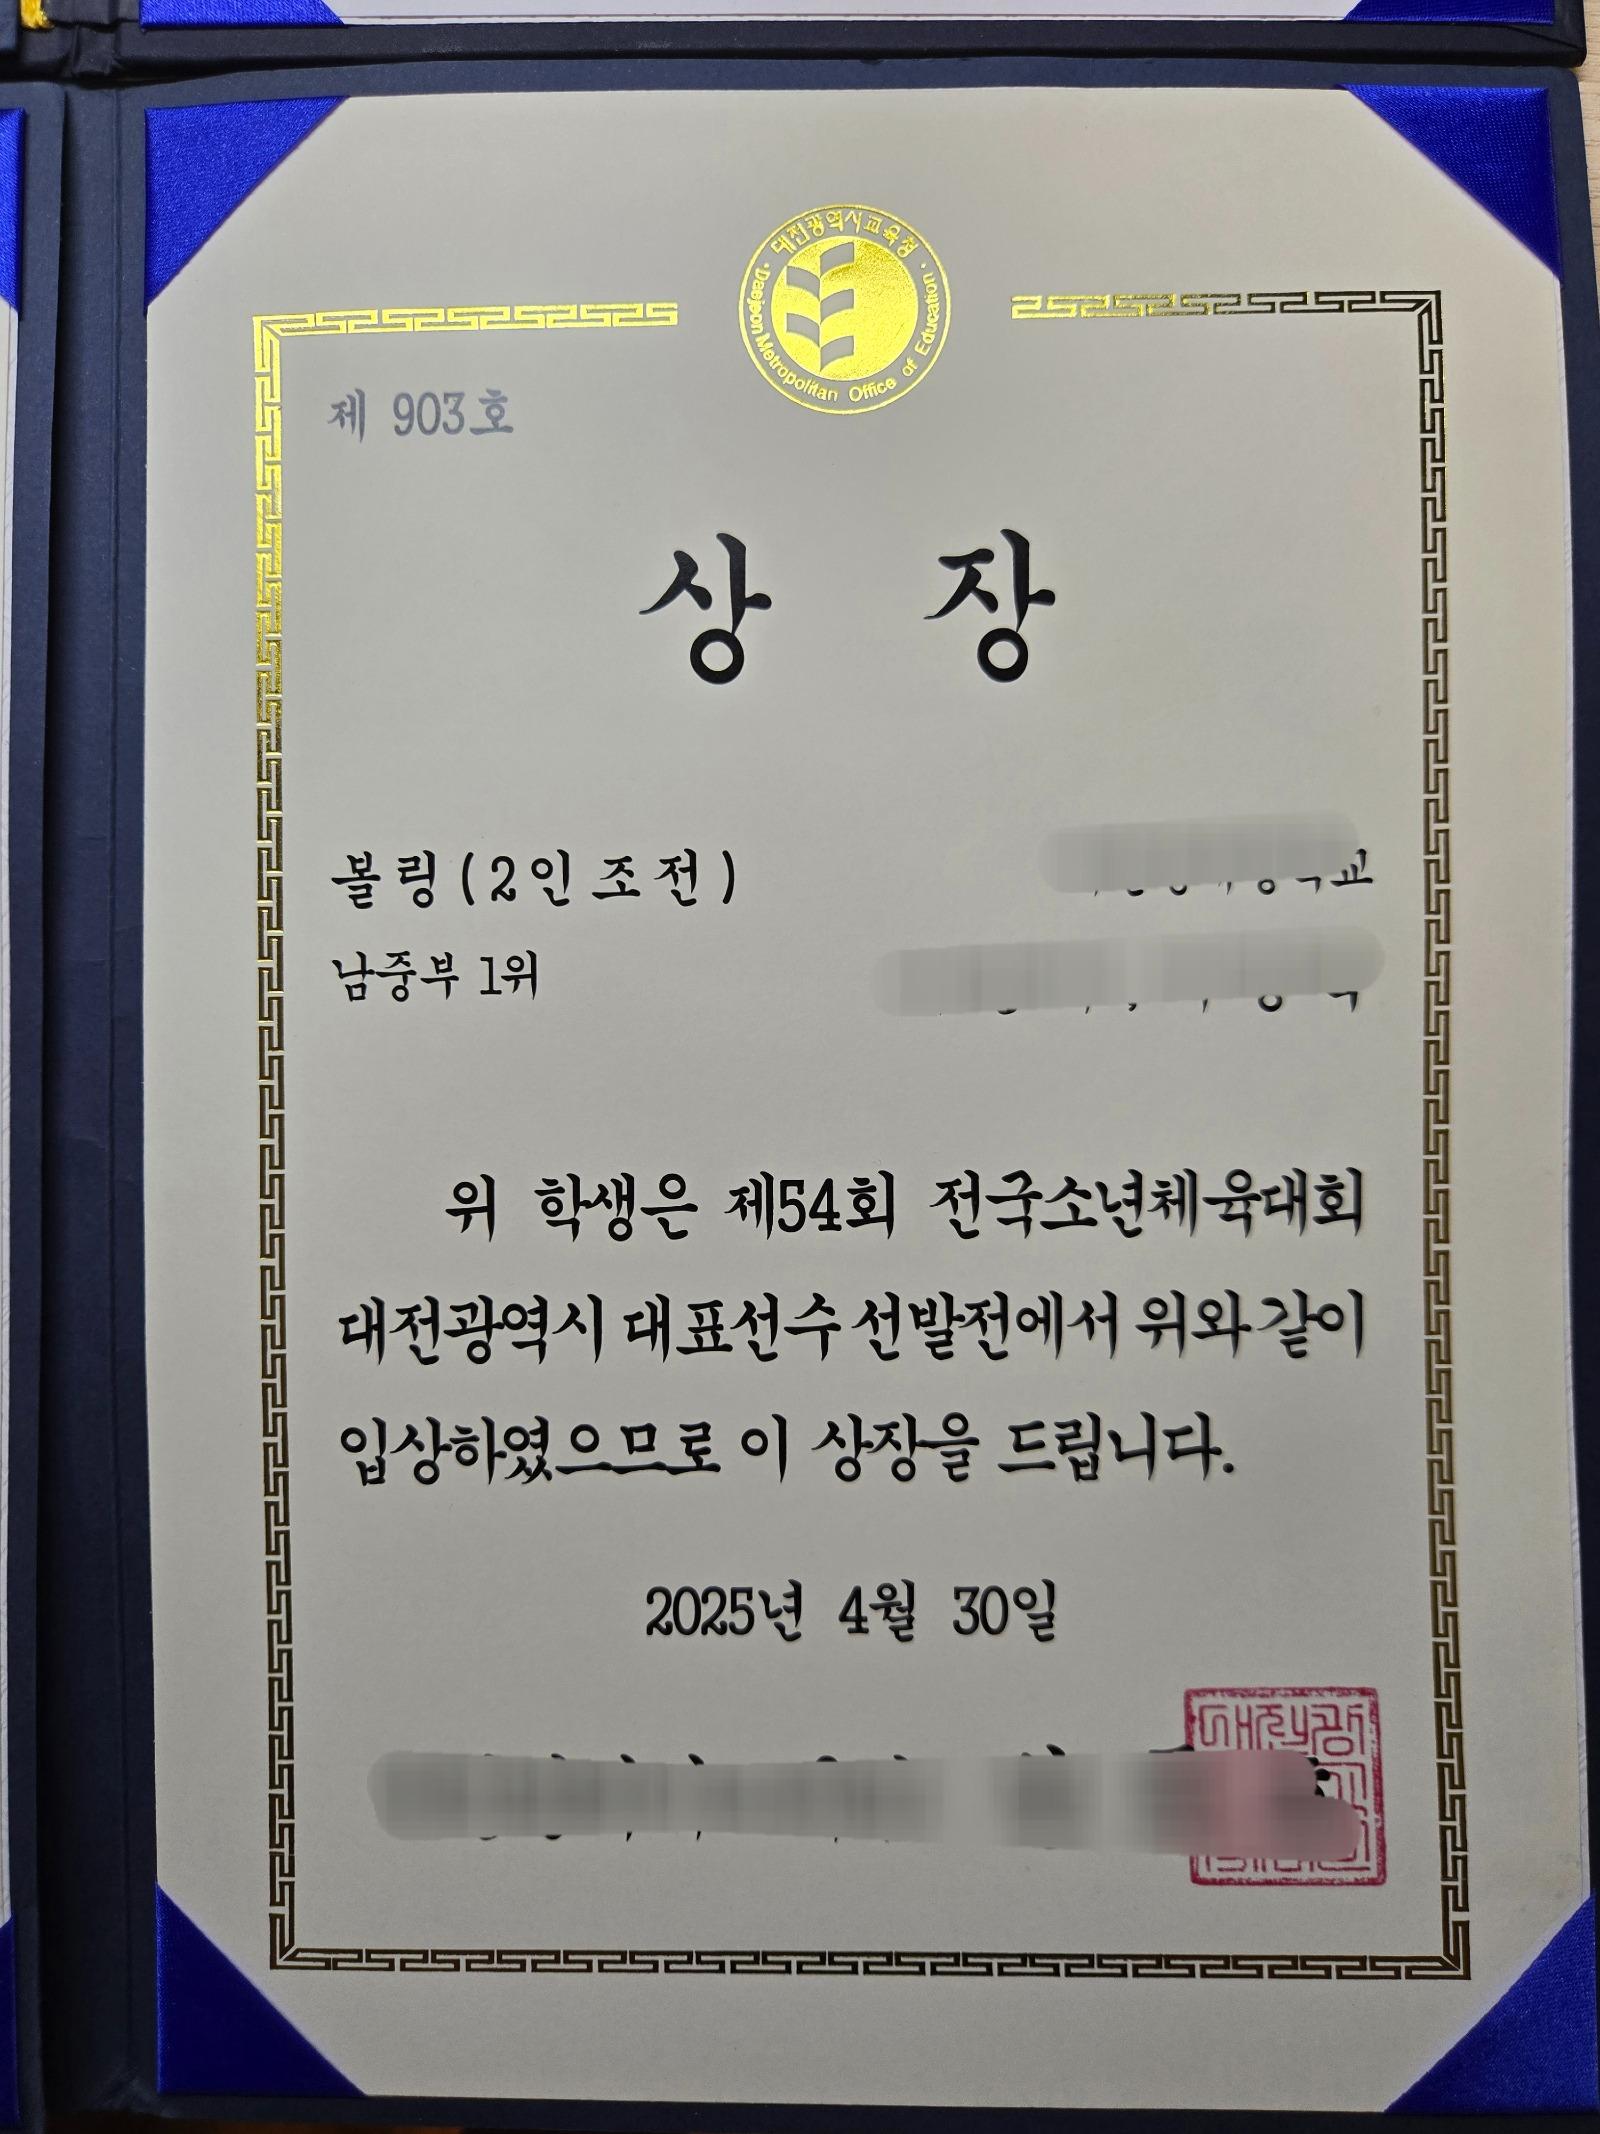 대전광역시교육청
Daejeon Metropolitan Office of Education
제 903호
상 장
볼링(2인조전)
남중부 1위
위 학생은 제54회 전국소년체육대회
대전광역시 대표선수 선발전에서 위와 같이
입상하였으므로 이 상장을 드립니다.
2025년 4월 30일